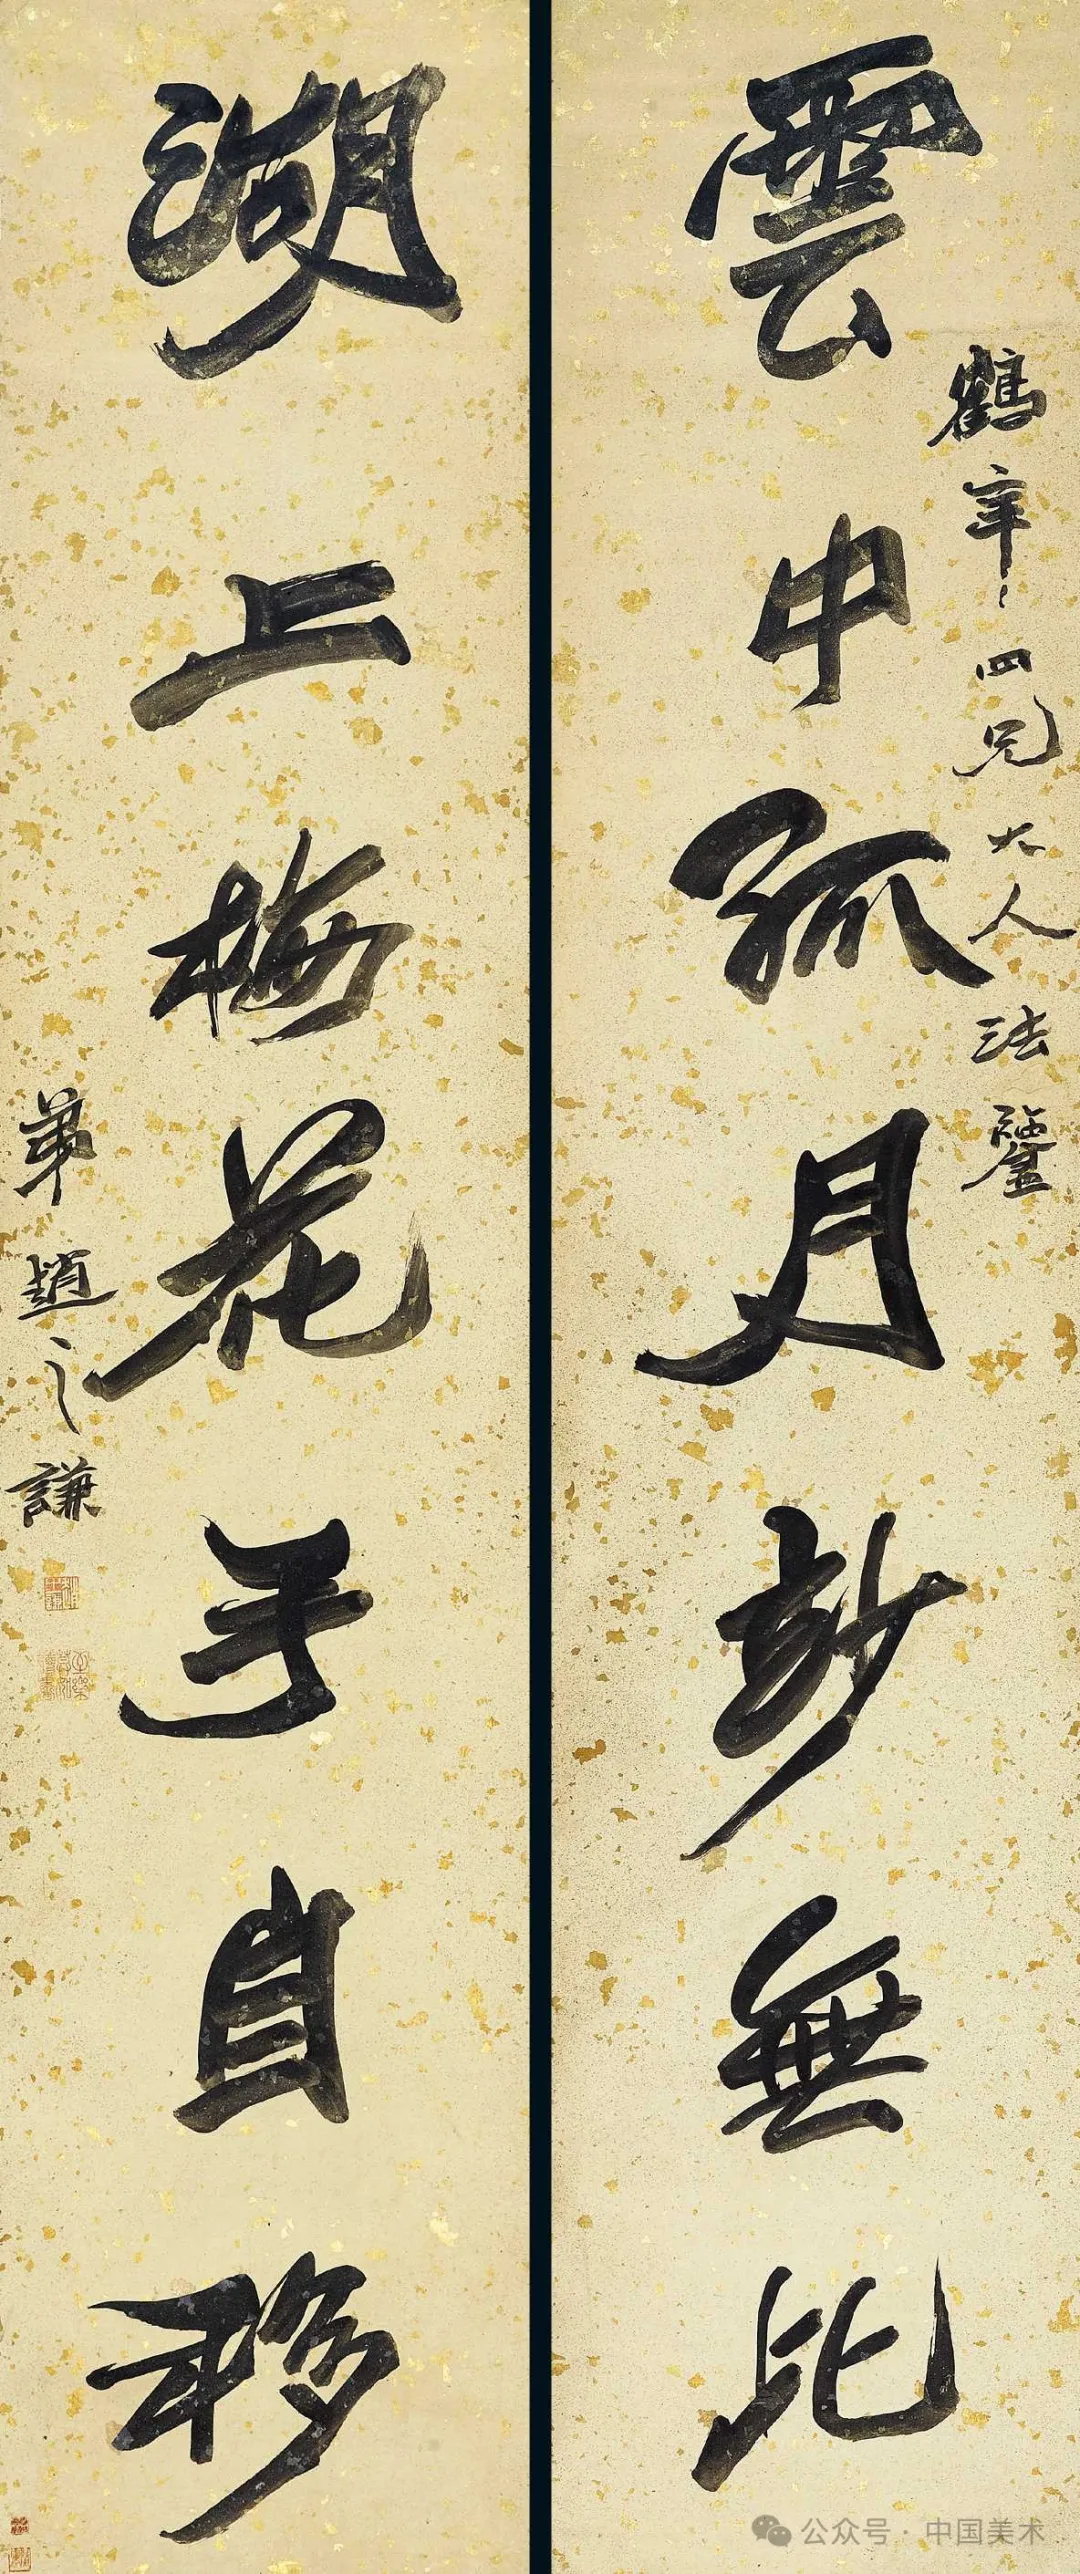 雲中孤月妙無比
鶴四兄大人法鑒
湖上梅花手自移
弟趙之謙
公众号 · 中国美术